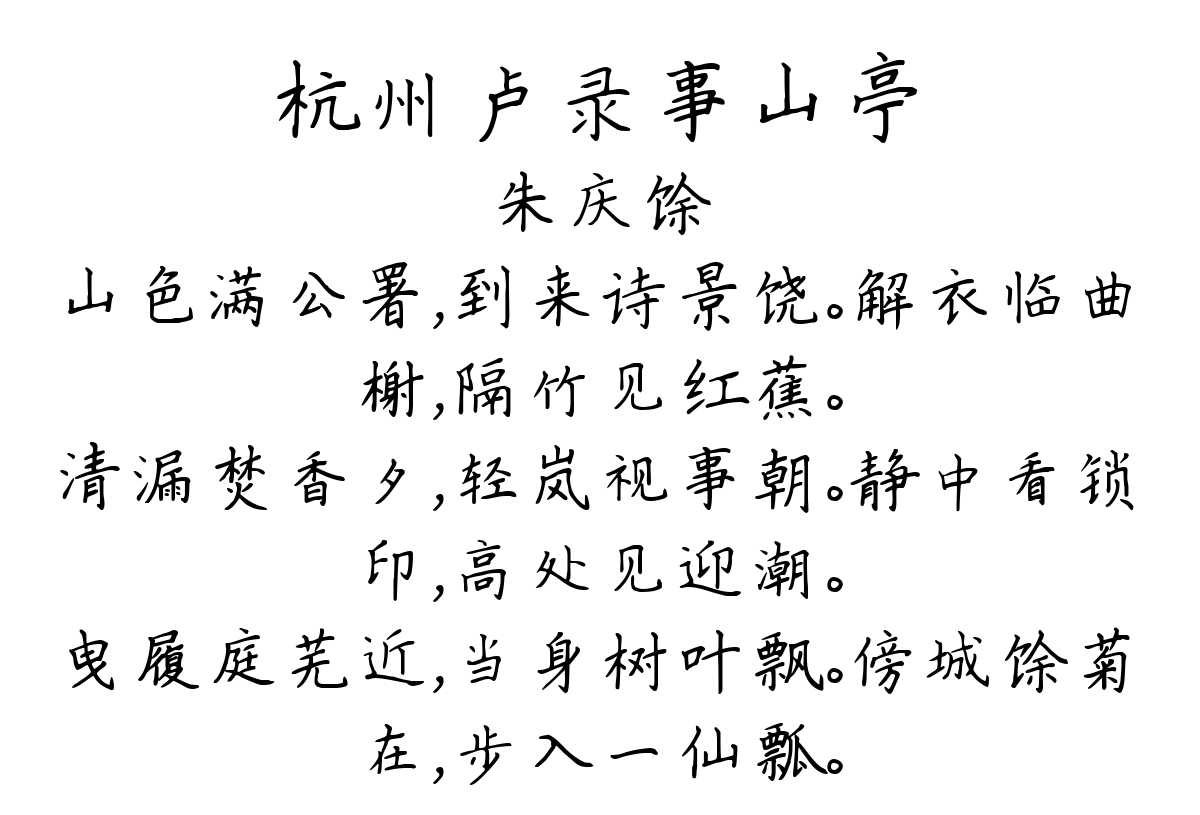 杭州卢录事山亭
朱庆馀
山色满公署,到来诗景饶。解衣临曲
榭,隔竹见红蕉。
清漏焚香夕,轻岚视事朝。静中看锁
印,高处见迎潮。
曳履庭芜近,当身树叶飘。傍城馀菊
在,步入一仙瓢。